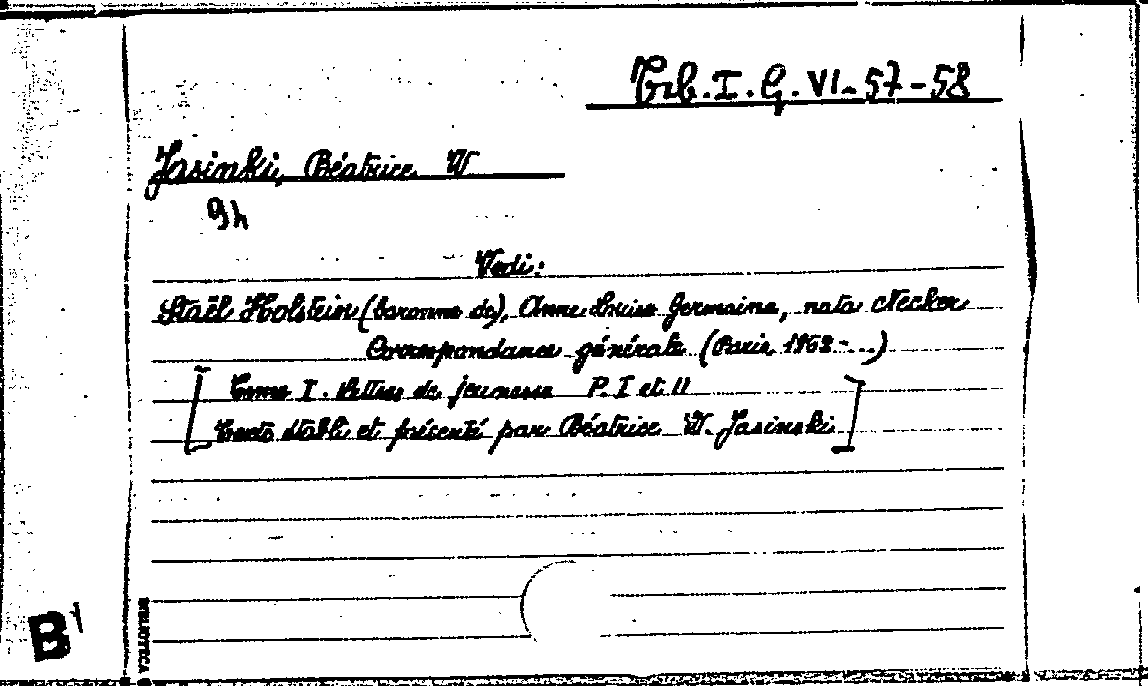 Trib. I. G. VI - 57 - 58
Jasinski, Béatrice W
Vedi:
Staël Holstein (baronne de), Anne Louise Germaine, nata Necker
Correspondance générale (Paris, 1962 - ...)
[Tome I. Lettres de jeunesse P. I et II
Texte établi et présenté par Béatrice W. Jasinski]
B1
BIBLIOTECA